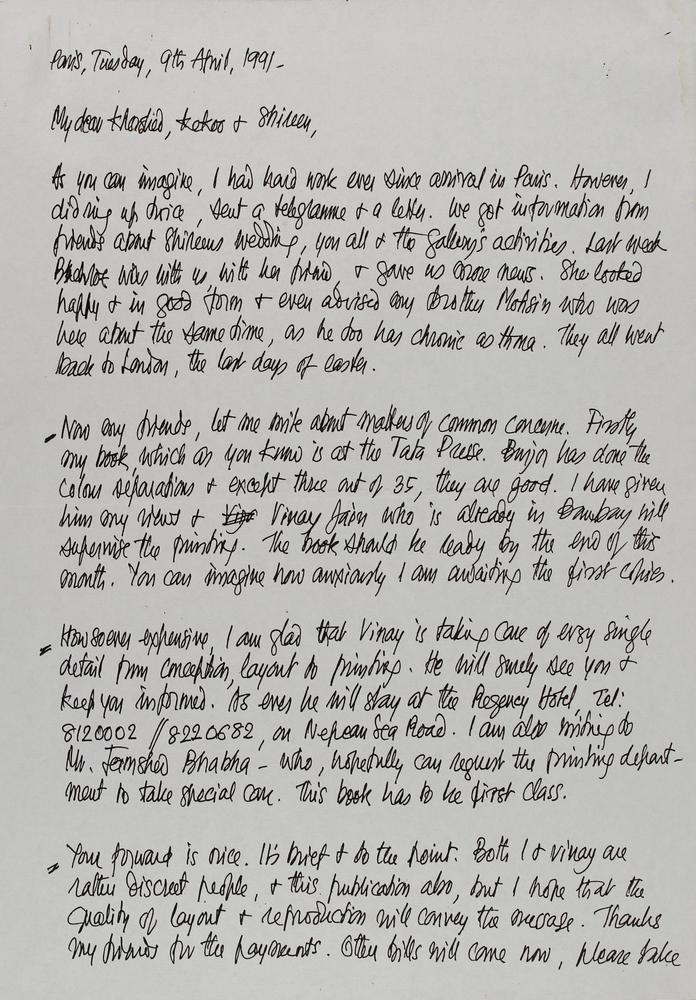 Paris, Tuesday, 9th April, 1991-
My dear Khorshed, Kekoo & Shireen,
As you can imagine, I had hard work ever since arrival in Paris. However, I
did ring up twice, sent a telegramme & a letter. We got information from
friends about Shireens wedding, you all & the gallery's activities. Last week
was with us with her friend, & gave us more news. She looked
happy & in good form & even advised my brother Mohsin who was
here about the same time, as he too has chronic asthma. They all went
back to London, the last days of easter.
Now my friends, let me write about matters of common concerne. Firstly
my book, which as you know is at the Tata Presse. Burjor has done the
colour separations & except three out of 35, they are good. I have given
him my views & Vinay Jain who is already in Bombay will
supervise the printing. The book should be ready by the end of this
month. You can imagine how anxiously I am awaiting the first copies.
Howsoever expensive, I am glad that Vinay is taking care of every single
detail from conception, layout to printing. He will surely see you &
keep you informed. As ever he will stay at the Regency Hotel, Tel:
8120002 // 8220682, on Nepean Sea Road. I am also writing to
Mr. Jamshed Bhabha - who, hopefully can request the printing depart-
ment to take special care. This book has to be first class.
Your forward is nice. It's brief & to the point. Both I & Vinay are
rather discreet people, & this publication also, but I hope that the
quality of layout & reproduction will convey the message. Thanks
my friends for the payments. Other bills will come now, please take